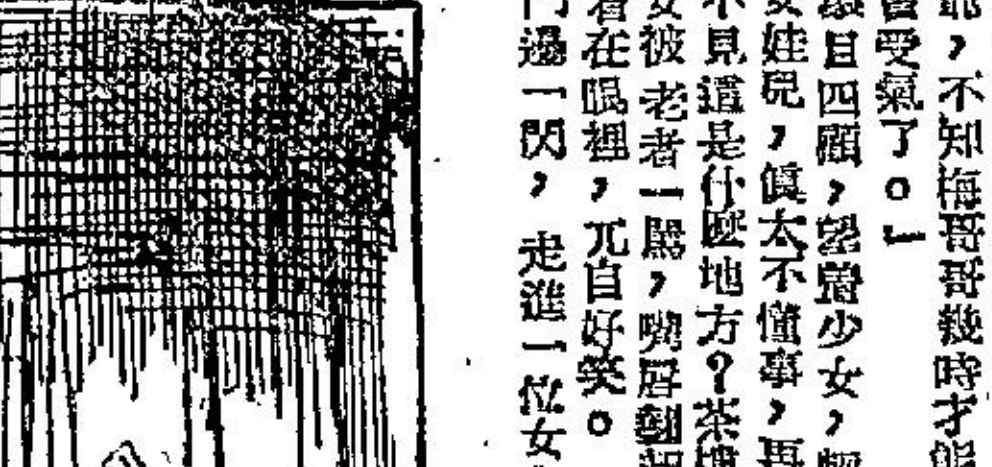 ，不知梅哥哥幾時才能
受氣了。」
目四顧，望着少女，
女娃兒，眞太不懂事，再
不見這是什麼地方？茶樓
女被老者一罵，嘴唇翻
着在眼裡，兀自好笑。
門邊一閃，走進一位女